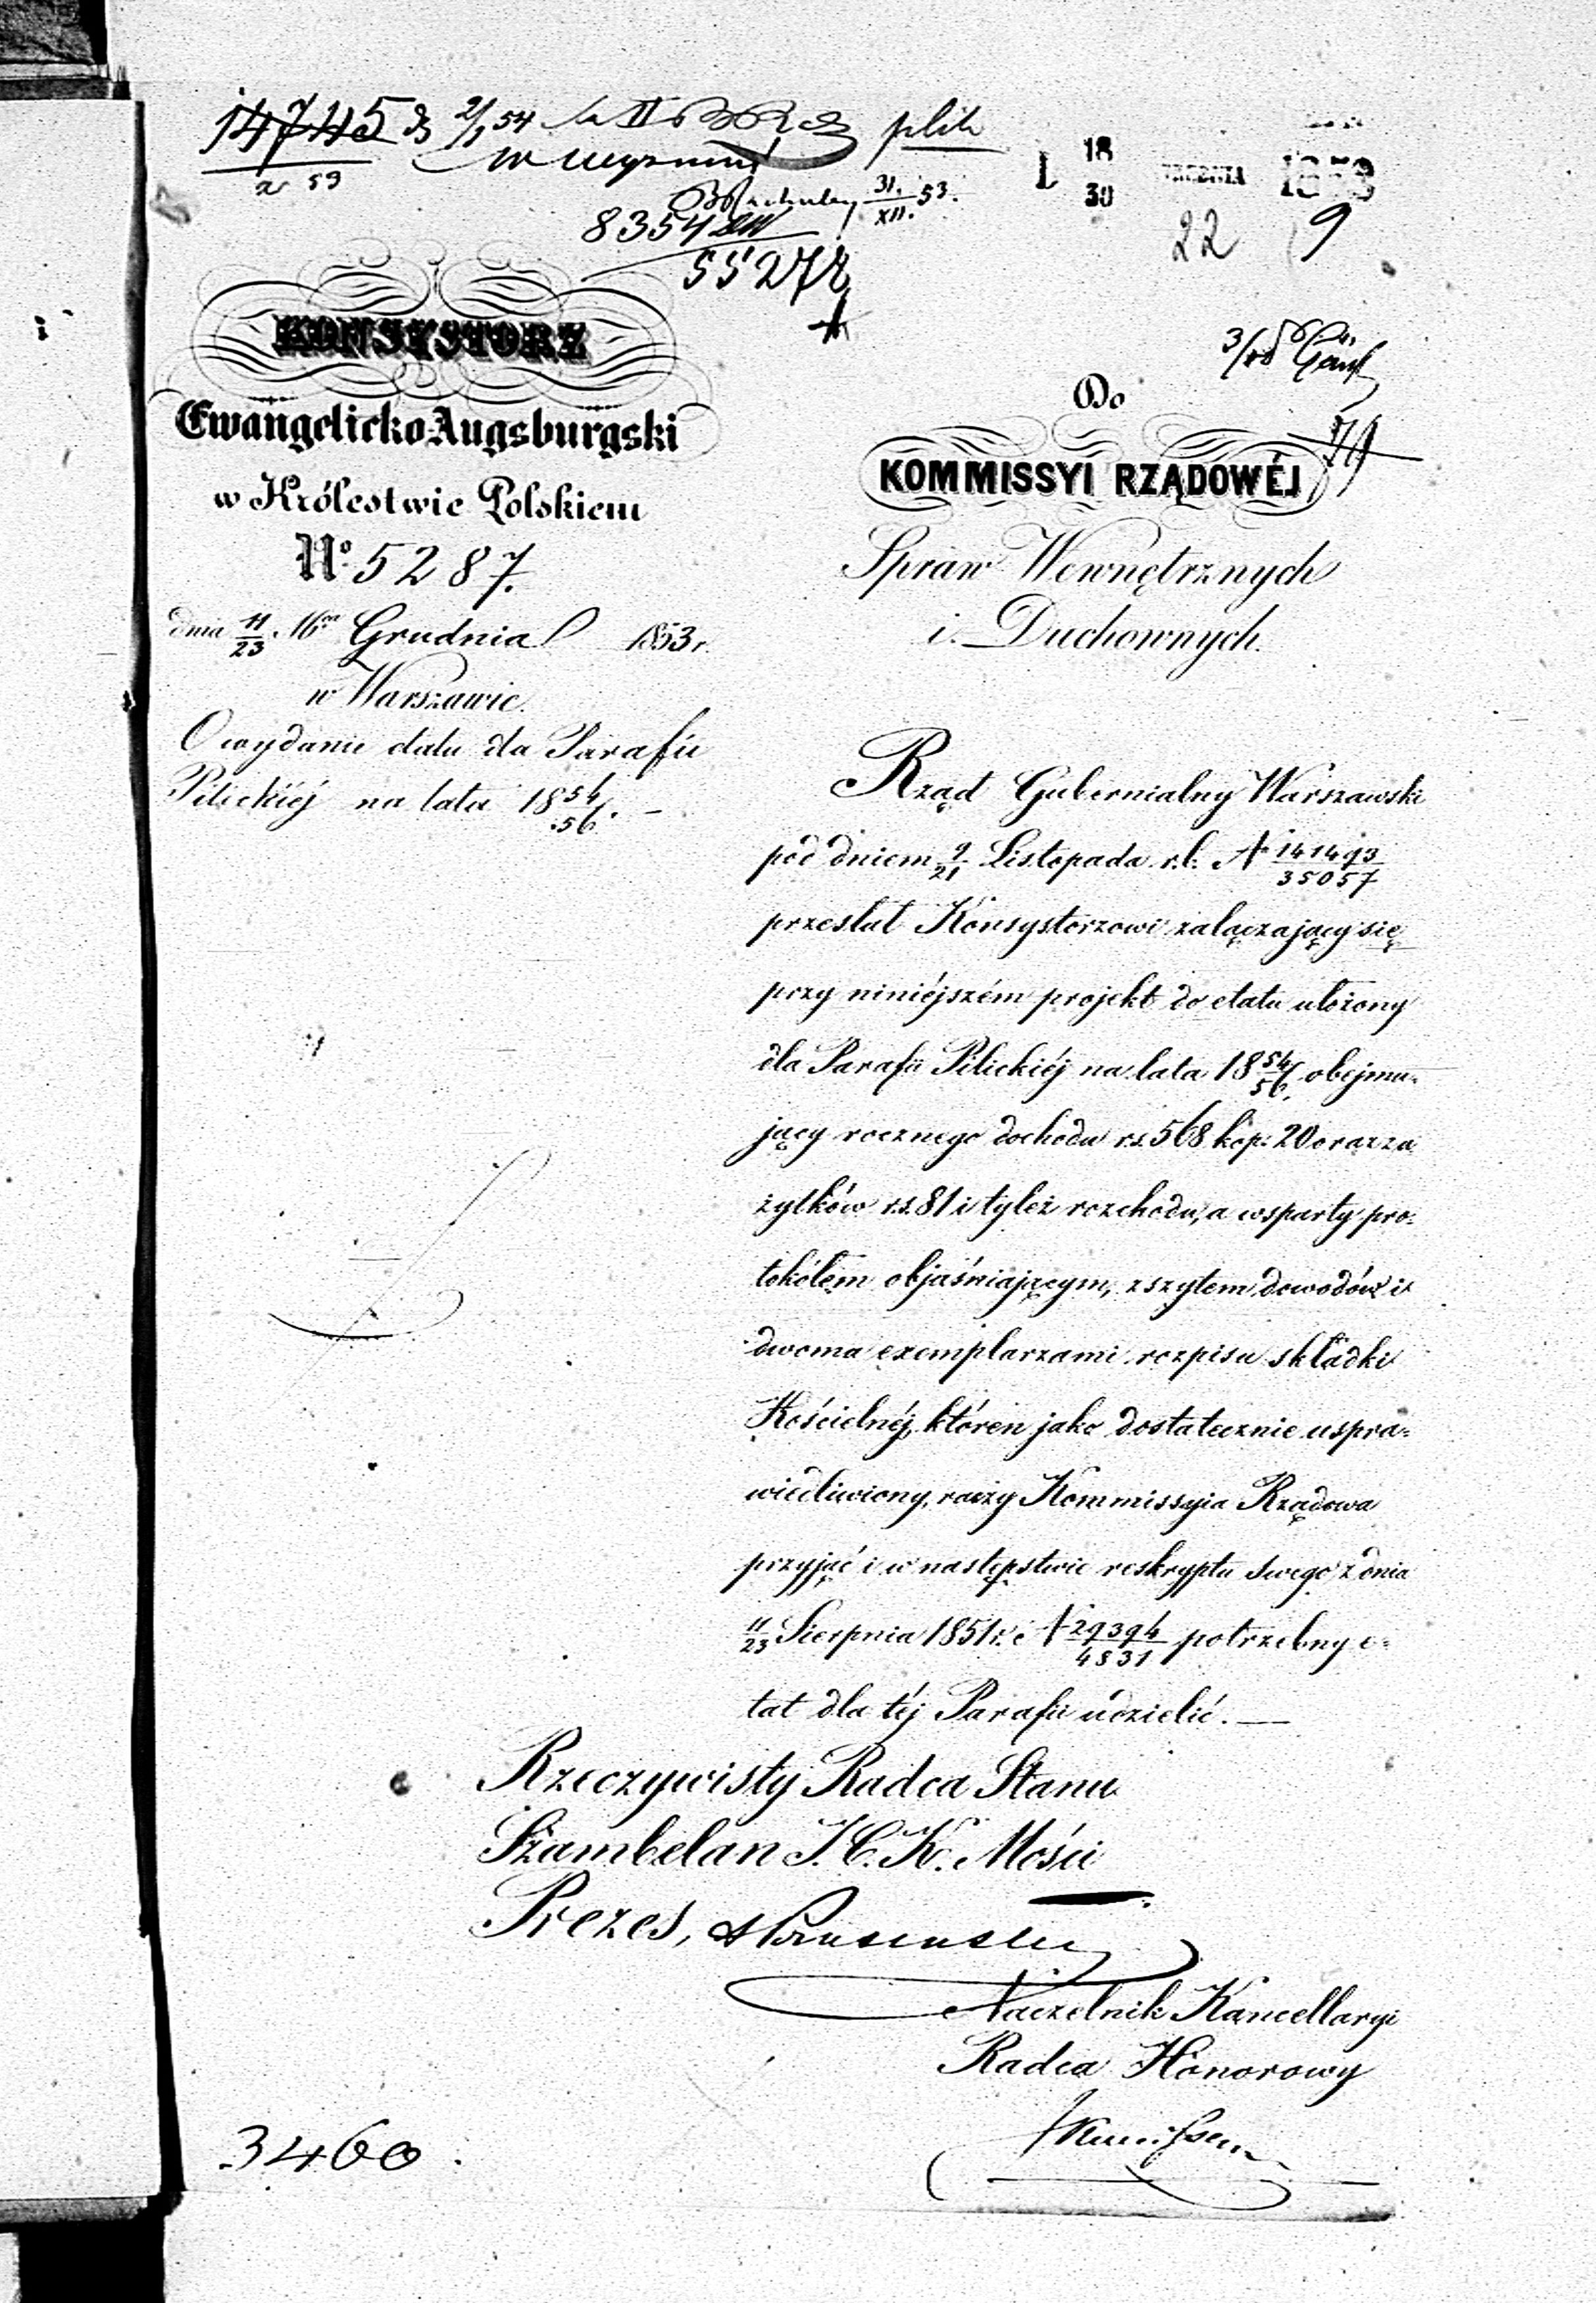 14745
a 53
2/1 54
plik
31./XII. 53.
8354
55272
18/30 GRUDNIA 1853
22 9
KONSYSTORZ
Ewangelicko Augsburgski
w Królestwie Polskiem
No. 5287.
dnia 11/23 Mca Grudnia 1853 r.
w Warszawie.
O wydanie etatu dla Parafii
Pilickiéj na lata 18 54/56. —
Do
KOMMISSYI RZĄDOWÉJ
Spraw Wewnętrznych
i Duchownych.
Rząd Gubernialny Warszawski
pod dniem 9/21 Listopada r. b. N 141493/35057
przesłał Konsystorzowi załączający się
przy niniéjszém projekt do etatu ułożony
dla Parafii Pilickiéj na lata 18 54/56, obejmu-
jący rocznego dochodu rs. 568 kop: 20 oraz za
żytków rs. 81 i tyleż rozchodu, a wsparty pro-
tokółem objaśniającym, zszytem dowodów i
dwoma exemplarzami rozpisu składki
Kościelnéj, któren jako dostatecznie uspra-
wiedliwiony, raczy Kommissyia Rządowa
przyjąć i w następstwie reskryptu swego z dnia
11/23 Sierpnia 1851 r. N 29394/4831 potrzebny e-
tat dla téj Parafii udzielić. —
Rzeczywisty Radca Stanu
Szambelan J. C. K. Mości
Prezes,
Naczelnik Kancellaryi
Radca Honorowy
3460